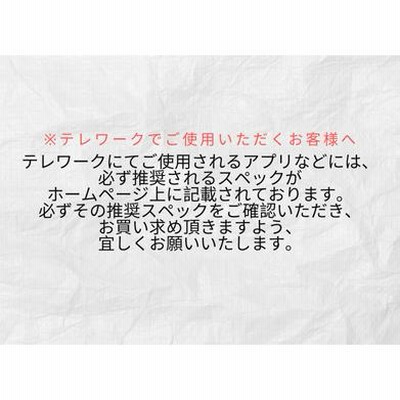 ※テレワークでご使用いただくお客様へ
テレワークにてご使用されるアプリなどには、
必ず推奨されるスペックが
ホームページ上に記載されております。
必ずその推奨スペックをご確認いただき、
お買い求め頂きますよう、
宜しくお願いいたします。